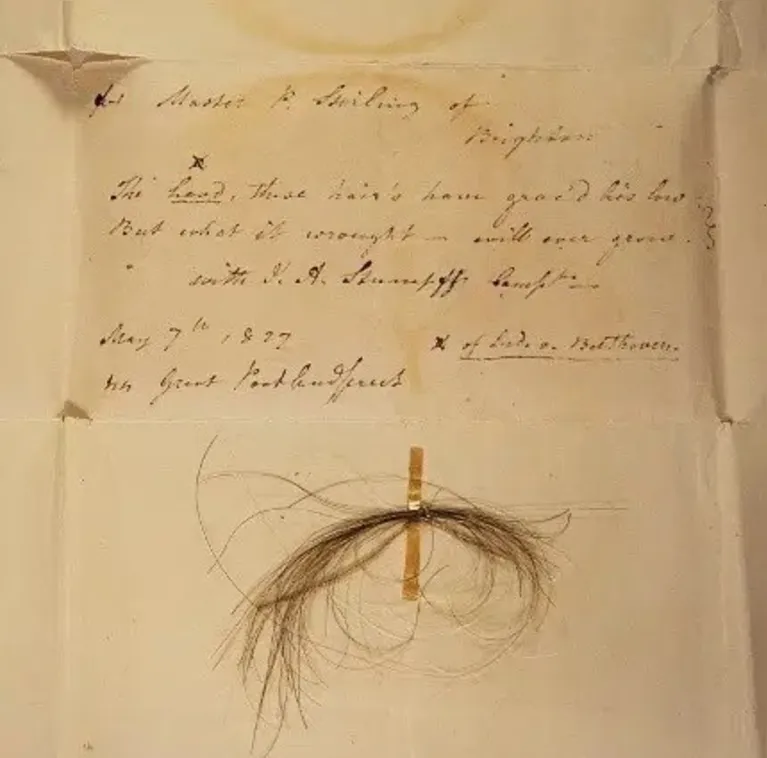 for Master P. Stirling of
Brighton
x
The head, these hair's have grac'd his low
But what it wrought – will ever grow.
with J. A. Stumpff's Complts
May 7th, 1827
Great Portland street
x of Lud. v. Beethoven.